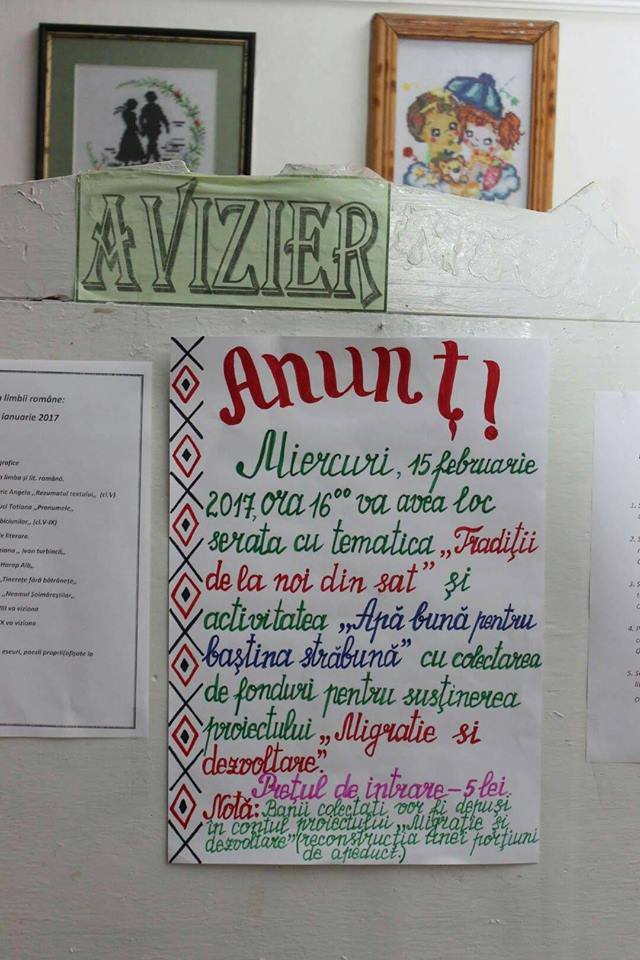 AVIZIER
Anunț!
Miercuri, 15 februarie
2017, ora 16⁰⁰ va avea loc
serata cu tematica „Tradiţii
de la noi din sat” şi
activitatea „Apă bună pentru
baştina străbună” cu colectarea
de fonduri pentru susţinerea
proiectului „Migratie si
dezvoltare”.
Preţul de intrare – 5 lei.
Notă: Banii colectati vor fi depuşi
in contul proiectului „Migratie şi
dezvoltare” (reconstrucţia unei porţiuni
de apeduct.)
limbii române:
ianuarie 2017
grafice
limba și lit. română.
ric Angela „Rezumatul textului„ (cl.V)
Tatiana „Pronumele„
(cl.V-IX)
e literare.
„ Ivan turbincă„
Harap Alb„
„Tinerețe fără bătrânețe„
„Neamul Șoimăreștilor„
VIII va viziona
X va viziona
eseuri, poezii proprii(afișate la
1. S
2. S
3. S
4. P
5. S